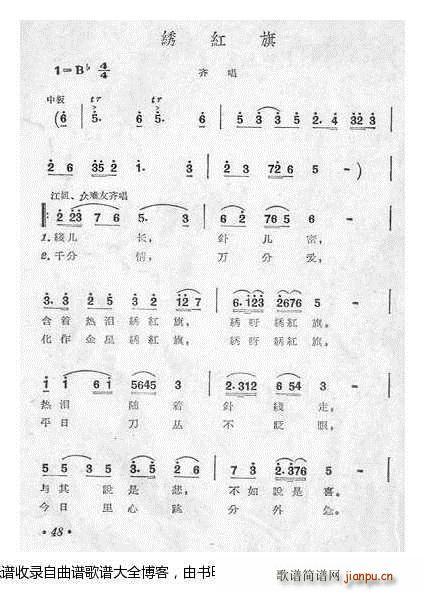 綉紅旗
1=B♭ 4/4
齐唱
中板
tr tr
(6 5. 6 5. 6 | 5 3 5 3 5 2. 4 32 3 |
2 6 35 2 1. 3 | 2 3 72 6 5 - )
江姐、众难友齐唱
2 23 7 6 5. 3 | 6 2 76 5 6 - |
1.綫儿 长, 針儿 密,
2.千分 情, 万分 爱,
3. 3 2 5 3 2 12 7 | 6. 123 2676 5 - |
含着 热泪 綉紅 旗, 綉呀 綉紅 旗。
化作 金星 綉紅 旗, 綉呀 綉紅 旗。
1 1 6 1 5645 3 | 2.312 6 54 3 - |
热泪 随着 針綫 走,
平日 刀丛 不 眨眼,
5 5 2 3 3. 5 2 6 | 7 3 2.376 5 - |
与其 說是 悲, 不如 說是 喜。
今日 里心 跳 分外 急。
• 48 •
谱收录自曲谱歌谱大全博客，由书
歌谱简谱网
jianpu.cn